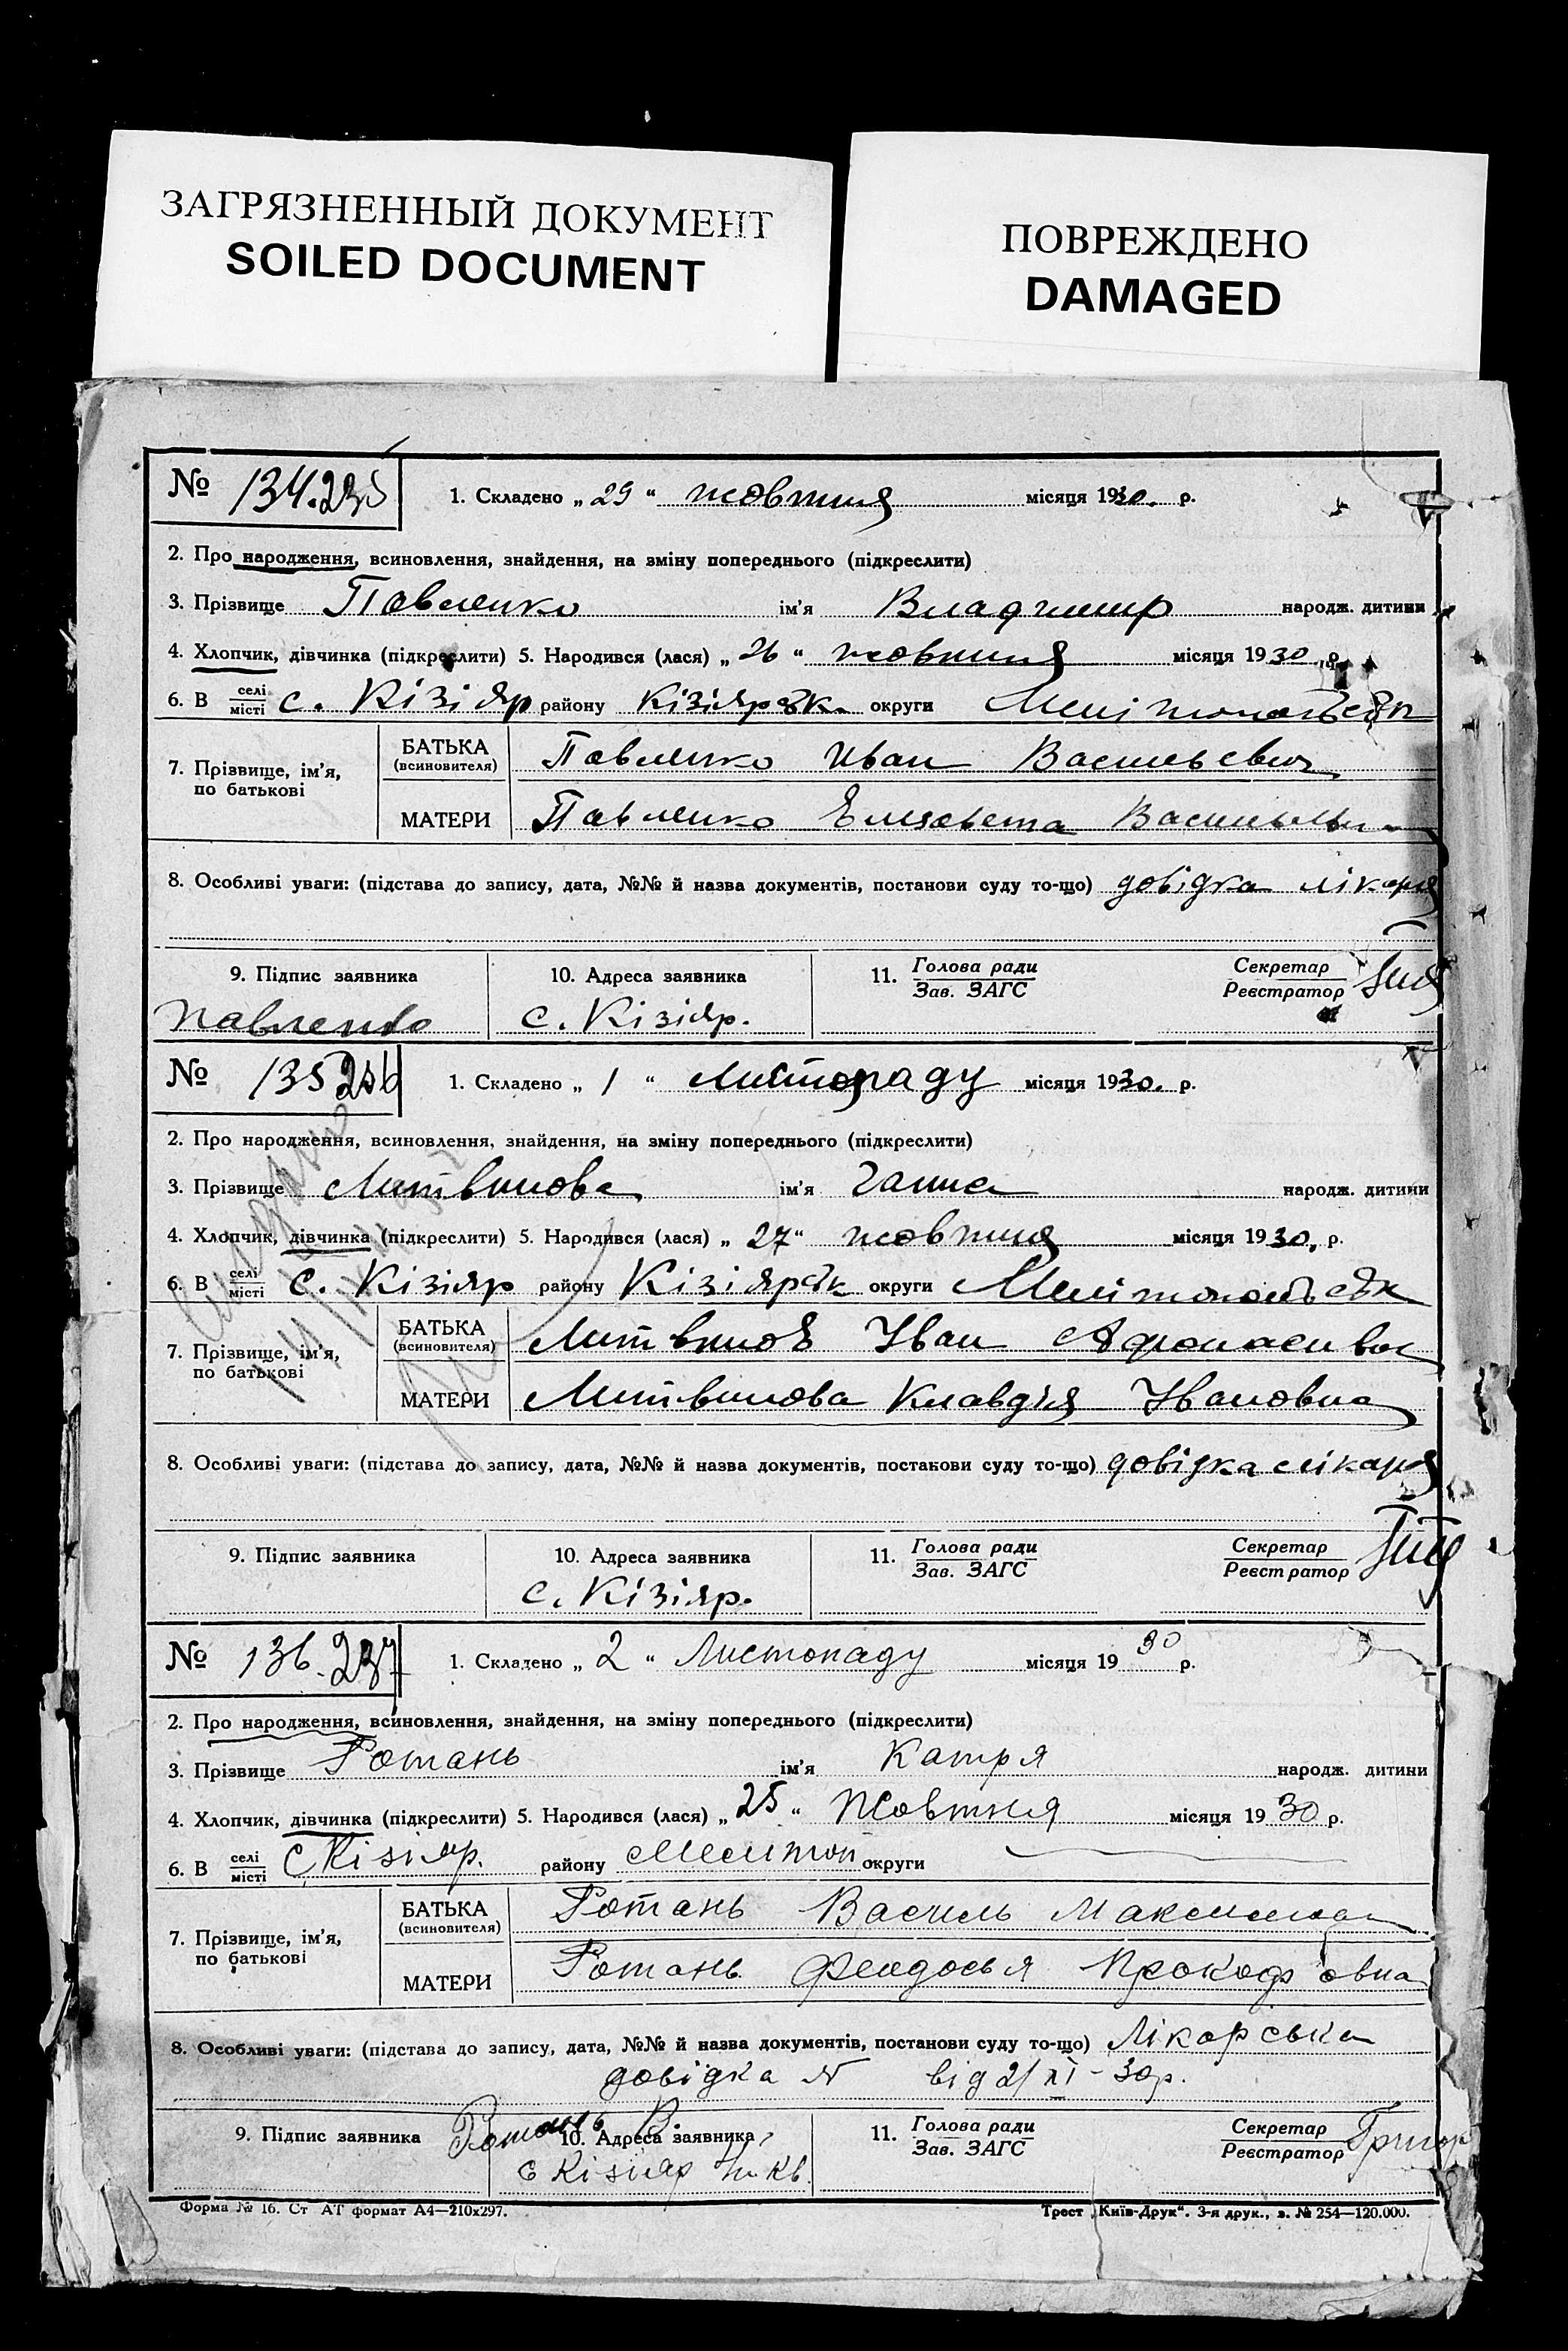 ЗАГРЯЗНЕННЫЙ ДОКУМЕНТ
SOILED DOCUMENT
ПОВРЕЖДЕНО
DAMAGED
№ 134.235
1. Складено „29“ жовтня місяця 1930. р.
2. Про народження, всиновлення, знайдення, на зміну попереднього (підкреслити)
3. Прізвище Павленко ім'я Владимир народж. дитини
4. Хлопчик, дівчинка (підкреслити) 5. Народився (лася) „26“ жовтня місяця 1930 р.
6. В селі/місті с. Кізіяр району Кізіярськ. округи Мелітопольськ
7. Прізвище, ім'я, по батькові
БАТЬКА (всиновителя) Павленко Иван Васильевич
МАТЕРИ Павленко Елизавета
8. Особливі уваги: (підстава до запису, дата, №№ й назва документів, постанови суду то-що) довідка лікаря
9. Підпис заявника
Павленко
10. Адреса заявника
с. Кізіяр.
11. Голова ради / Зав. ЗАГС
Секретар / Реєстратор
№ 135 236
1. Складено „1“ листопаду місяця 1930. р.
2. Про народження, всиновлення, знайдення, на зміну попереднього (підкреслити)
3. Прізвище Литвинова ім'я Ганна народж. дитини
4. Хлопчик, дівчинка (підкреслити) 5. Народився (лася) „27“ жовтня місяця 1930, р.
6. В селі/місті с. Кізіяр району Кізіярськ округи Мелітопольськ
7. Прізвище, ім'я, по батькові
БАТЬКА (всиновителя) Литвинов Іван
МАТЕРИ Литвинова Клавдія Івановна
8. Особливі уваги: (підстава до запису, дата, №№ й назва документів, постанови суду то-що) довідка лікаря
9. Підпис заявника
10. Адреса заявника
с. Кізіяр.
11. Голова ради / Зав. ЗАГС
Секретар / Реєстратор
№ 136.237
1. Складено „2“ Листопаду місяця 1930 р.
2. Про народження, всиновлення, знайдення, на зміну попереднього (підкреслити)
3. Прізвище Ротань ім'я Катря народж. дитини
4. Хлопчик, дівчинка (підкреслити) 5. Народився (лася) „25“ Жовтня місяця 1930 р.
6. В селі/місті с Кізіяр. району Мелитоп округи
7. Прізвище, ім'я, по батькові
БАТЬКА (всиновителя) Ротань Василь
МАТЕРИ Ротань Феодосья Прокоф'овна
8. Особливі уваги: (підстава до запису, дата, №№ й назва документів, постанови суду то-що) Лікарська
довідка № від 2/XI-30р.
9. Підпис заявника Ротань В.
10. Адреса заявника
с Кізіяр
11. Голова ради / Зав. ЗАГС
Секретар / Реєстратор
Форма № 16. Ст АТ формат А4—210х297.
Трест „Київ-Друк“. 3-я друк., з. № 254—120.000.